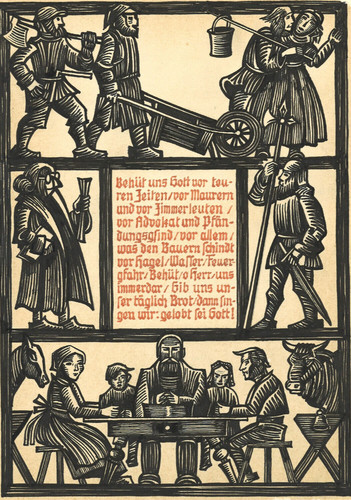 Behüt uns Gott vor teu-
ren Zeiten/vor Maurern
und vor Zimmerleuten/
vor Advokat und Pfän-
dungsgsind/vor allem/
was den Bauern schindt
vor Hagel/Wasser/Feuer-
gfahr/Behüt/o Herr/uns
immerdar/Gib uns un-
ser täglich Brot/dann sin-
gen wir: gelobt sei Gott!